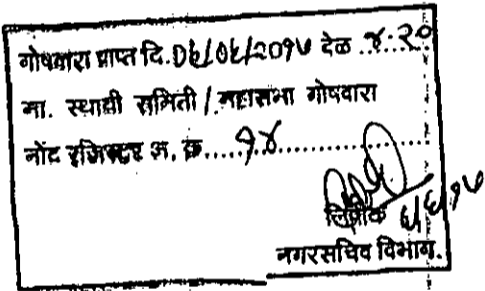 गोषवारा प्राप्त दि. ०६/०६/२०१७ वेळ ४:२०
मा. स्थायी समिती / महासभा गोषवारा
नोंद रजिस्टर अ. क्र. १४
लिपीक ६/६/१७
नगरसचिव विभाग.